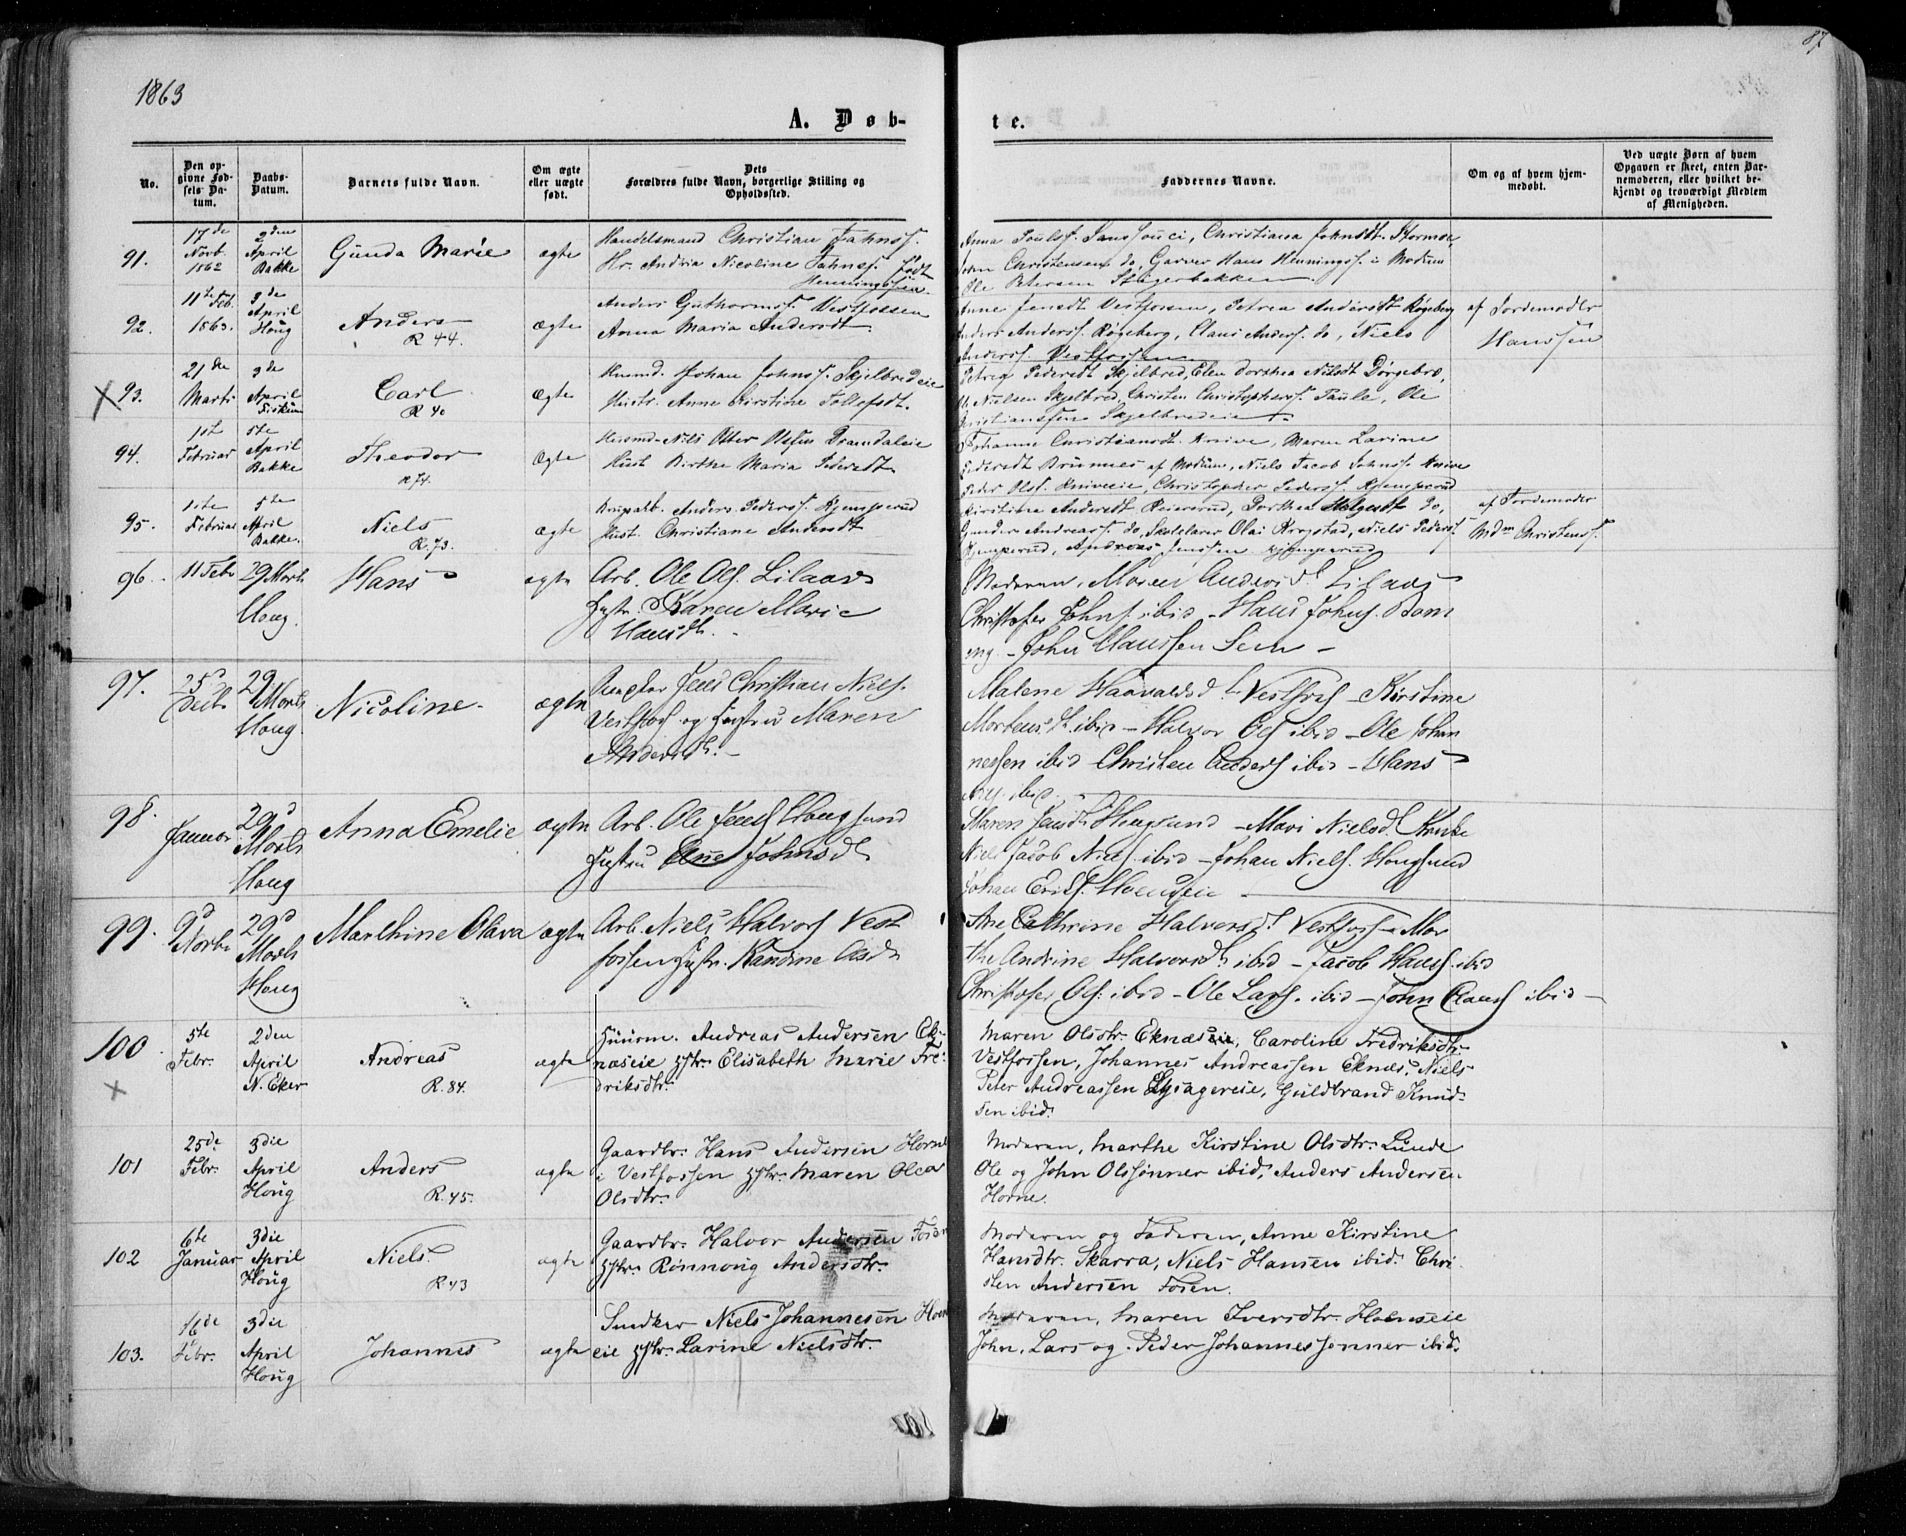 1863
87
A. Døb-
te.
No.
Den op-
givne Fød-
sels Da-
tum.
Daabs-
Datum.
Barnets fulde Navn.
Om ægte
eller uægte
født.
Dets
Forældres fulde Navn, borgerlige Stilling og
Opholdssted.
Faddernes Navne.
Om og af hvem hjem-
medøbt.
Ved uægte Børn af hvem
Opgaven er skeet, enten Bar-
nemoderen, eller hvilket be-
kjendt og troværdigt Medlem
af Menigheden.
91.
17de
Novb.
1862
2den
April
Bakke
Gunda Marie
ægte
Handelsmand Christian
Andria Nicoline født
Henningsen
Anna Poulsf. Sanssouci, Christiana Johnsdt. Stormoe,
Christensen do, Garver Hans Hennings. i Modum
Ole Petersen Steigerbakken
92.
11te Feb.
1863.
3de
April
Houg
Anders
R 44.
Ægte
Anders Guthorms. Vestfossen
Anna Maria Andersdt.
Anne Jensdt Vestfossen, Petrea Andersdt Røgeberg
Anders Anderss. Røgeberg, Claus Anderss. do, Niels
Anderss. Vestfossen
af Jordemoder
Hanssen
93.
21de
Marts
3de
April
Fiskum
Carl
R 40
Ægte
Huusmd. Johan Johnss. Skjelbredeie
Hustr. Anne Kirstine Tollefsdt.
Petrea Pedersdt Skjelbred, Elen Dorthea Nilsdt Dørgebro,
Nielsen Skjelbred, Christen Christophers. Paule, Ole
Christianssen Skjelbredeie
94.
1ste
Februar
5te
April
Bakke
Theodor
R 74.
Ægte
Huusmd. Nils Otter Olssen
Hust. Birthe Maria Pedersdt.
Johanne Christiansdt. Knive, Maren Larine
Pedersdt Brunnæs af Modum, Niels Jacob Johnss. Knive
Peder Olss. Kniveeie, Christopher Peders. Kjemperud
95.
11te
Februar
5te
April
Bakke.
Niels
R. 73.
ægte
Anders Peders. Kjemperud
Hust. Christiane Andersdt
Kirstine Andersdt Reierrud, Dorthea Helgesdt do,
Gunder Andreass. do, Skolelærer Olai Krogstad, Niels Peders.
Kjemperud, Andreas Jenssen Kjemperud
af Jordemoder
Mdm Christens.
96.
11 Febr
29 Marts
Houg.
Hans
ægte
Arb. Ole Ols. Lilaas
Hustr. Karen Marie
Hansdt.
Moderen, Maren Andersdt Lilaas
Christofer Johns. ibid - Hans Johns. Bam
eng - John Claussen Sem -
97.
25d
Decbr
29
Marts
Houg.
Nicoline
ægte
Jens Christian Niels.
Vestfoss og Hustru Maren
Andersdt. -
Malene Haavaldsdt Vestfoss - Kirstine
Mortensdt ibid - Halvor Ols ibid - Ole Johan
nessen ibid Christen Anders ibid - Hans
Niels. ibid.
98.
Januar
29d
Marts
Houg
Anna Emelie
ægte
Arb. Ole Jens Hougsund
Hustru Ane Johnsdt
Maren Jensdt Hougsund - Mari Nielsdt
Niels Jacob Niels. ibid - Johan Niels. Hougsund
Johan Ericks.
99.
9d
Novbr
29d
Marts
Houg
Marthine Olava
ægte
Arb. Niels Halvors Vest
fossen Hustr. Randine Olsdt
Ane Cathrine Halvorsdt Vestfoss - Mar
the Andrine Halvorsdt ibid - Jacob Hans. ibid
Christofer Ols: ibid - Ole Lars. ibid - John Claus ibid -
100
5te
Febr.
2den
April
N. Eker
Andreas
R. 84.
ægte
Huusm. Andreas Andersen Ek-
næseie Hstr. Elisabeth Marie Fre-
driksdtr.
Maren Olsdtr. Eknæseie, Caroline Fredriksdtr.
Vestfossen, Johannes Andreassen Eknæs, Niels
Peter Andreassen Lysagereie, Guldbrand Knud-
sen ibid.
101
25de
Febr.
3die
April
Houg
Anders
R. 45.
ægte
Gaardbr. Hans Andersen Horne
i Vestfossen Hstr. Maren Olea
Olsdtr.
Moderen, Marthe Kirstine Olsdtr. Lunde
Ole og John Olssønner ibid, Anders Andersen
Horne.
102
6te
Januar
3die
April
Houg
Niels.
R. 43
ægte
Gaardbr. Halvor Andersen Fosen
Hstr. Rønnoug Andersdtr.
Moderen og Faderen, Anne Kirstine
Hansdtr. Skarra, Niels Hansen ibid. Chri
sten Andersen Fosen.
103.
16de
Febr.
3die
April
Houg
Johannes
ægte
Snedker Niels Johannesen
eie Hstr. Larine Nielsdtr.
Moderen, Maren Iversdtr. Hoenseie
John, Lars og Peder Johannessønner ibid.